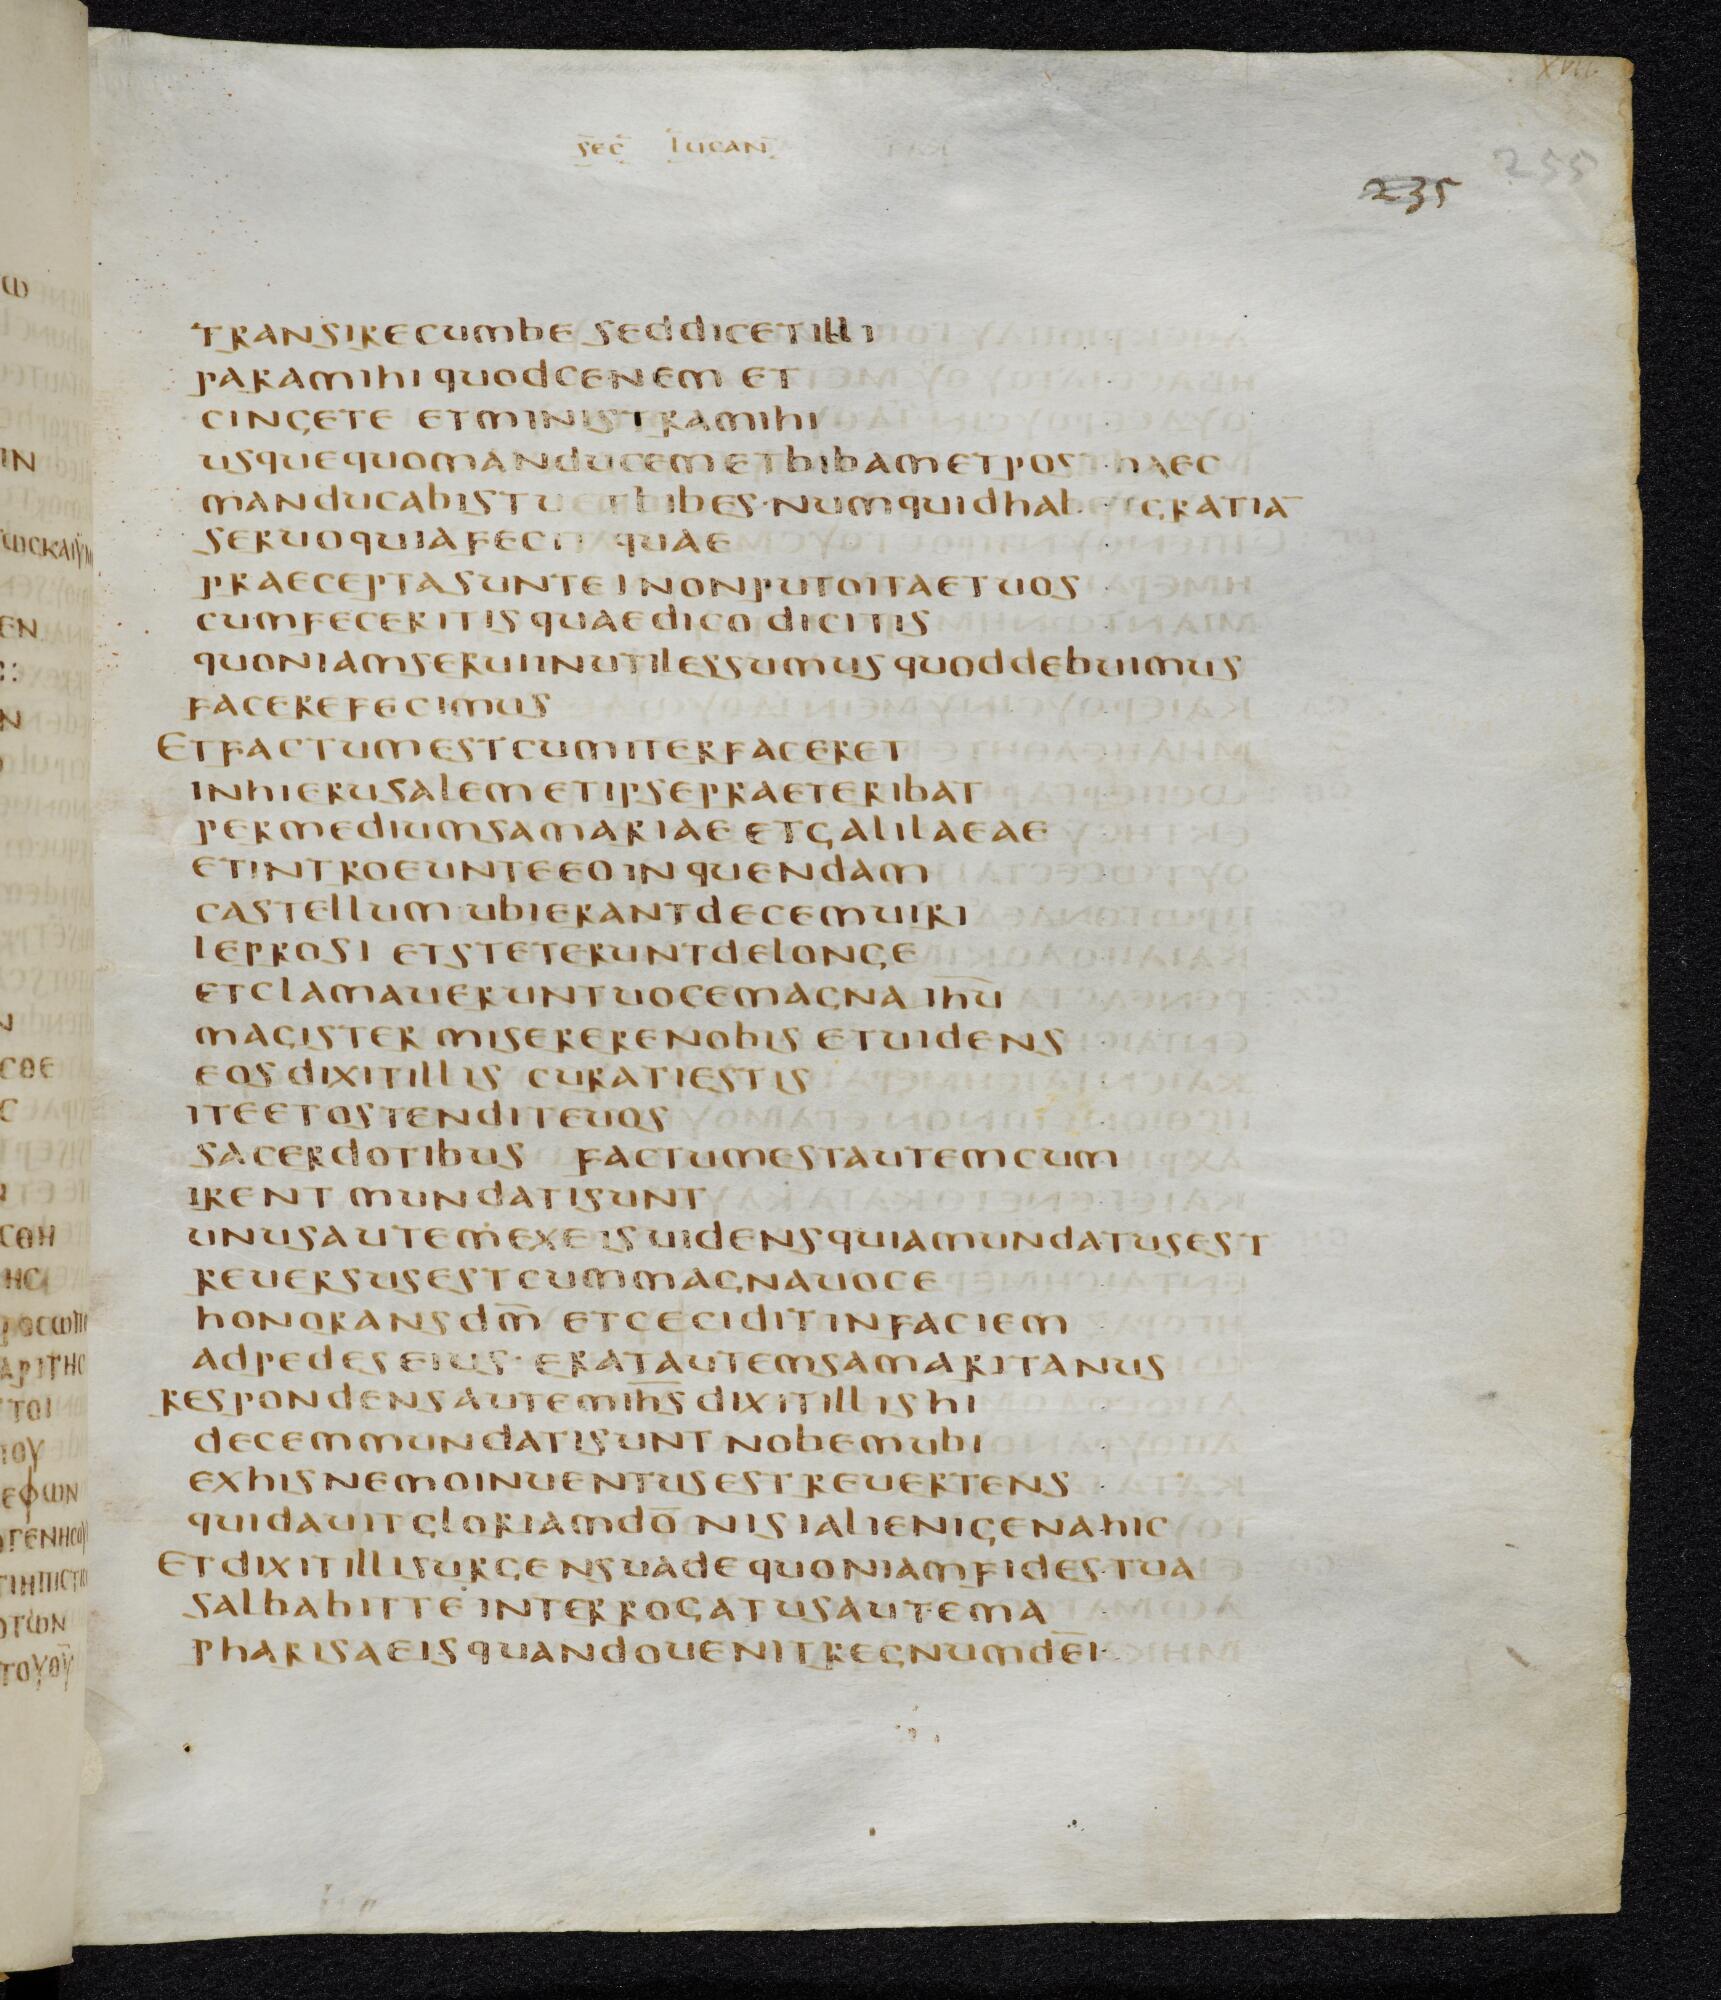 XVII
sec̄ lucan̄
255
235
transirecumbe seddicetilli
paramihi quodcenem et
cingete etministramihi
usquequomanducemetbibametpost haec
manducabistu et bibes·numquidhabet gratiā
seruoquiafecit quae
praeceptasuntei nonputoitaetuos
cumfeceritisquaedico dicitis
quoniamseruiinutilessumusquoddebuimus
facerefecimus
Etfactumestcumiterfaceret
inhierusalemetipsepraeteribat
permediumsamariae etgalilaeae
etintroeunteeoinquendam
castellum ubierantdecemuiri
leprosi etsteteruntdelonge
etclamaueruntuocemagna ihū
magister misererenobis etuidens
eosdixitillis curatiestis
iteetostenditeuos
sacerdotibus factumestautemcum
irent mundatisunt
unusautemexeisuidensquiamundatusest
reuersusestcummagnauoce
honoransdm̄ etceciditinfaciem
adpedeseius· eratautemsamaritanus
respondensautemih̄sdixitillishi
decemmundatisunt nobemubi
exhisnemoinuentusestreuertens
quidauitgloriamdō nisialienigenahic
Etdixitillisurgensuadequoniamfidestua
salbabitte interrogatusautema
pharisaeisquandouenitregnumdēi·